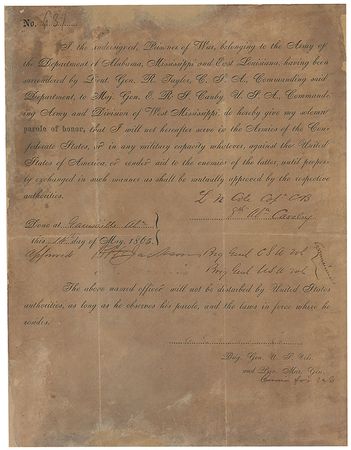 No. 631
I the undersigned, Prisoner of War, belonging to the Army of
the Department of Alabama, Mississippi and East Louisiana, having been
surrendered by Lieut. Gen. R. Taylor, C. S. A., Commanding said
Department, to Maj. Gen. E. R. S. Canby, U. S. A., Command-
ing Army and Division of West Mississippi, do hereby give my solemn
parole of honor, that I will not hereafter serve in the Armies of the Con-
federate States, or in any military capacity whatever, against the United
States of America, or render aid to the enemies of the latter, until proper-
ly exchanged in such manner as shall be mutually approved by the respective
authorities.
Cole Capt Co B
8th Ala Cavalry
Done at Gainesville Ala
this day of May, 1865.
Approved Jackson Brig Genl C S A
Brig Genl U S A vol
The above named officer will not be disturbed by United States
authorities, as long as he observes his parole, and the laws in force where he
resides.
Brig. Gen. U. S. Vols.
and Pro. Mar. Gen.